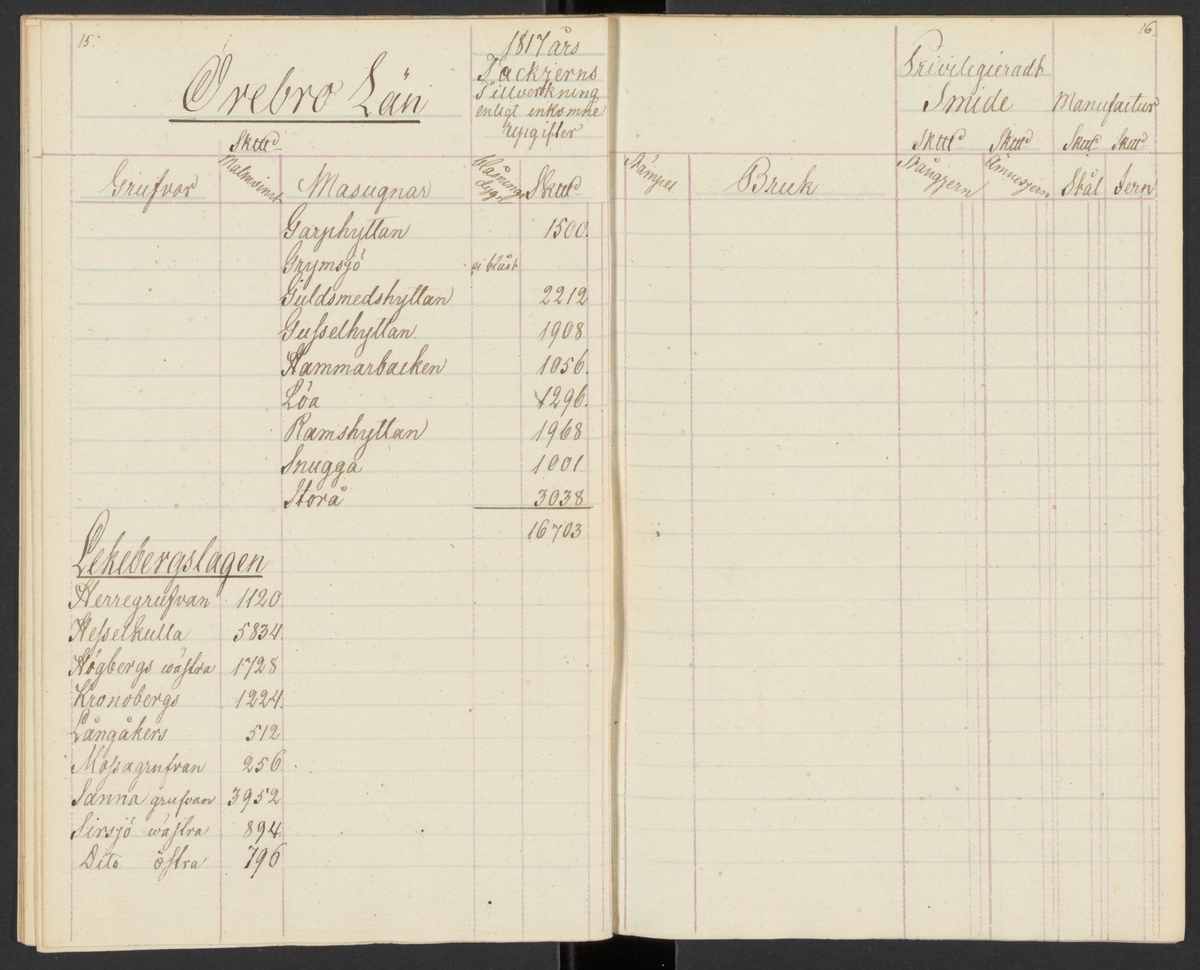 15.
Örebro Län
1817 års
Tackjerns
Tillverkning
enligt inkomne
Upgifter
Skttd
Grufvor
Malmvinst
Masugnar
Blåsnings dygn
Skttd
Garphyttan 1500.
Grymsjö ej blåst
Guldsmedshyttan 2212
Gusselhyttan 1908
Hammarbacken 1056.
Löa 1296.
Ramshyttan 1968
Snugga 1001
Storå 3038
16703
Lekebergslagen
Herregrufvan 1120.
Hesselkulla 5834
Högbergs wästra 1728
Kronobergs 1224.
Långåkers 512
Mossagrufvan 256.
Sanna grufvan 3952
Sirsjö wästra 894
Dito östra 796
16.
Privilegieradt
Smide Manufactur
Skttd Skttd Skttd Skttd
Stämpel
Bruk
Stångjern
Ämnesjern
Stål Jern